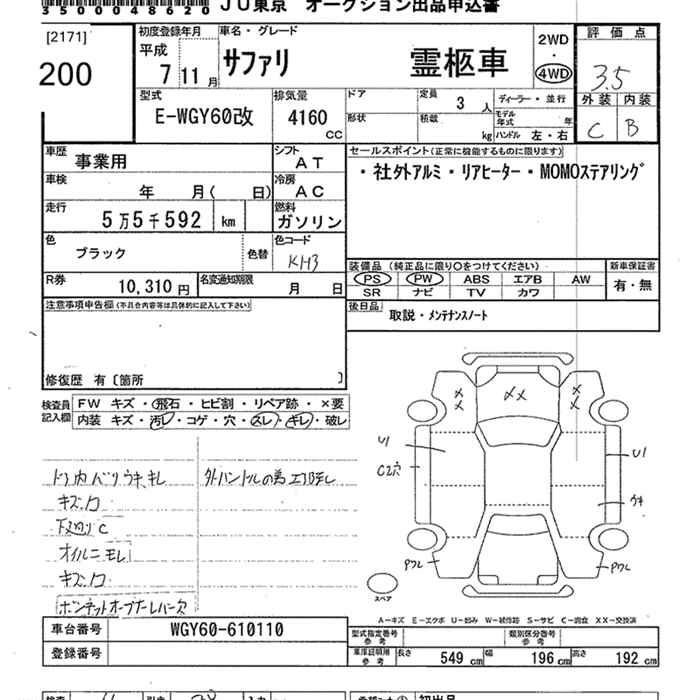 3500048620 JU東京 オークション出品申込書
[2171]
200
初度登録年月
平成
7 11月
車名・グレード
サファリ 霊柩車
2WD
・
4WD
評価点
3.5
外装 内装
C B
型式
E-WGY60改
排気量
4160
CC
ドア
形状
定員 3 人
積載 kg
ディーラー・並行
モデル年式 年
ハンドル 左・右
車歴
事業用
シフト
AT
車検
年 月( 日)
冷房
AC
走行
5万5千592 km
燃料
ガソリン
色
ブラック
色替
色コード
KH3
R券
10,310円
名変通知期限
月 日
セールスポイント(正常に機能するものに限ります)
・社外アルミ・リアヒーター・MOMOステアリング
装備品(純正品に限り〇をつけてください)
新車保証書
PS PW ABS エアB AW
SR ナビ TV カワ
有・無
後日品
取説・メンテナンスノート
注意事項申告欄(不具合内容等は具体的に記入して下さい)
修復歴 有〔箇所 〕
検査員記入欄
FW キズ・飛石・ヒビ割・リペア跡・×要
内装 キズ・汚レ・コゲ・穴・スレ・キレ・破レ
キズ
オイルニモレ
キズ
U1
C2穴
U1
ウキ
スペア
A-キズ E-エクボ U-凹み W-補修跡 S-サビ C-腐食 XX-交換済
車台番号
WGY60-610110
登録番号
型式指定番号
参考
類別区分番号
参考
車庫証明用
参考
長さ 549cm
幅 196cm
高さ 192cm